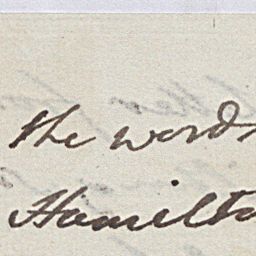 the words
Hamilto